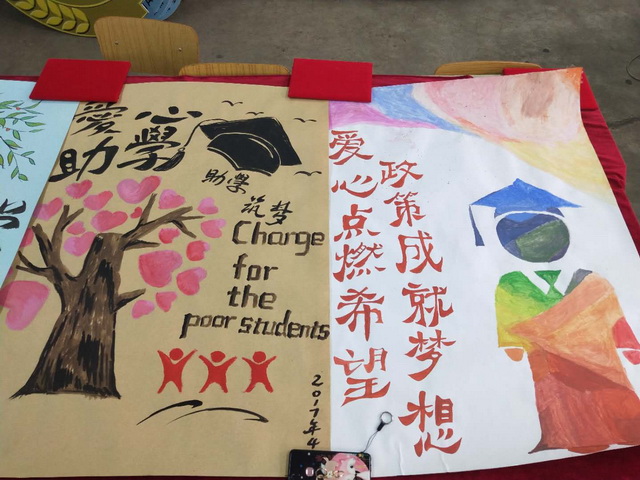 愛心
助學
助學
筑梦
Charge
for
the
poor students
2017年4
爱心点燃希望
政策成就梦想